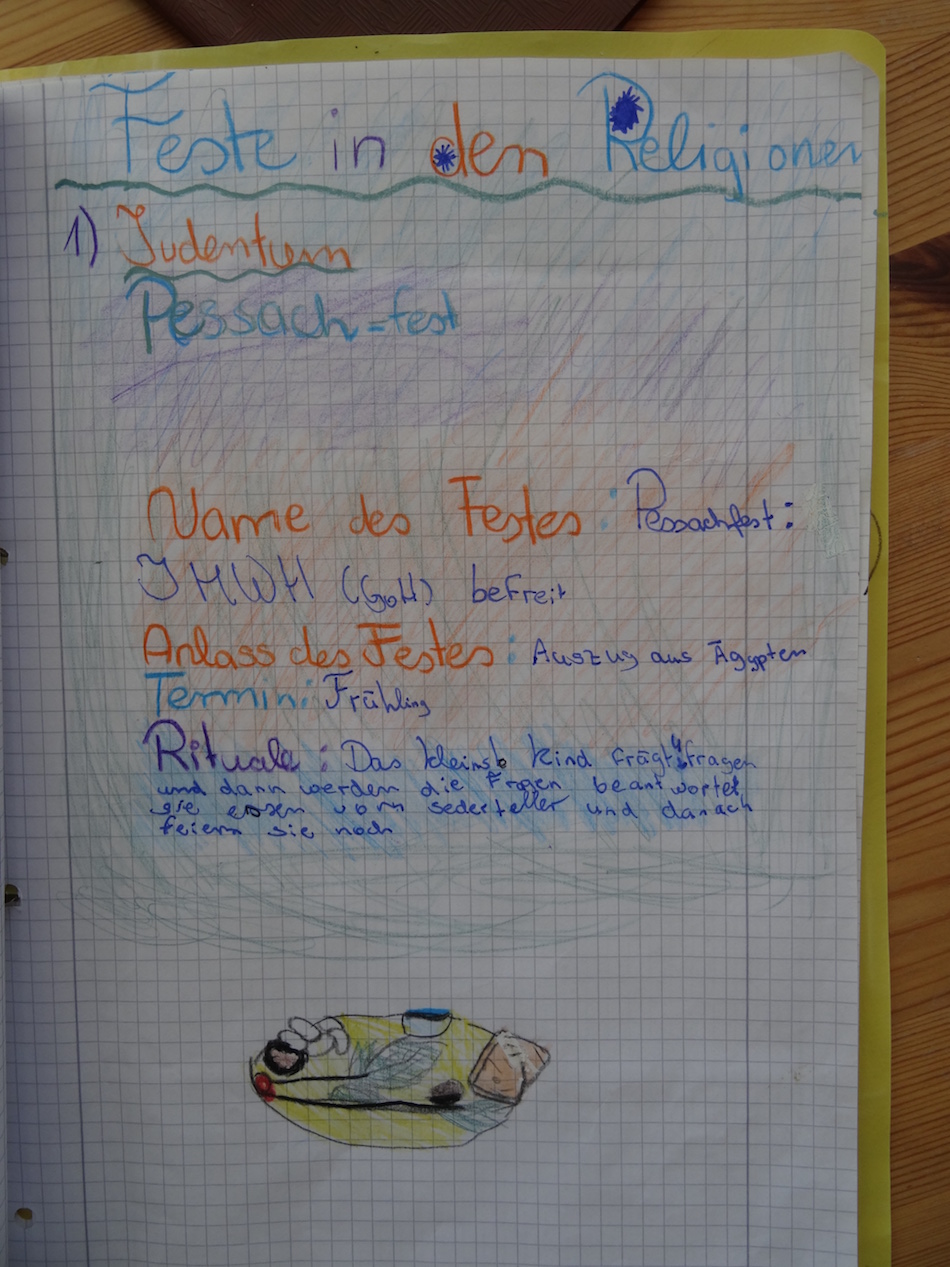 Feste in den Religionen
1) Judentum
Pessach-fest
Name des Festes: Pessachfest:
JHWH (Gott) befreit
Anlass des Festes: Auszug aus Ägypten
Termin: Frühling
Rituale: Das kleinste Kind frägt 4 fragen
und dann werden die Fragen beantwortet,
sie essen vom sederteller und danach
feiern sie noch